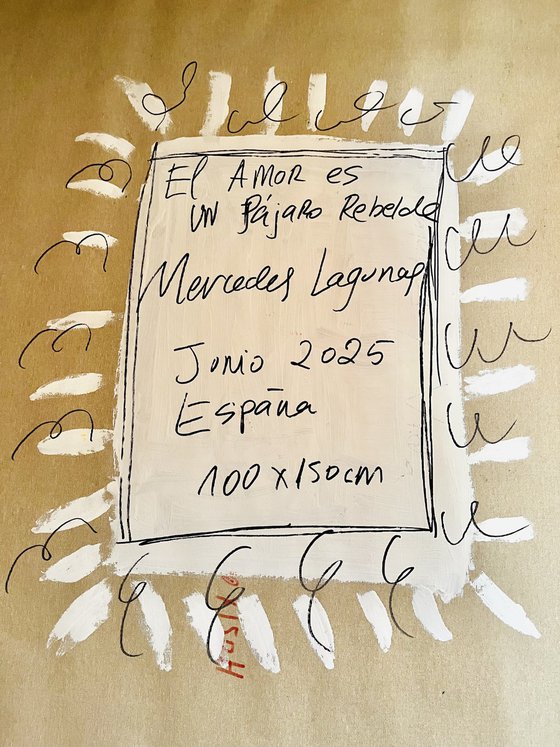 El AMOR es
UN Pájaro Rebelde
Mercedes Lagunas
Junio 2025
España
100 x 150cm